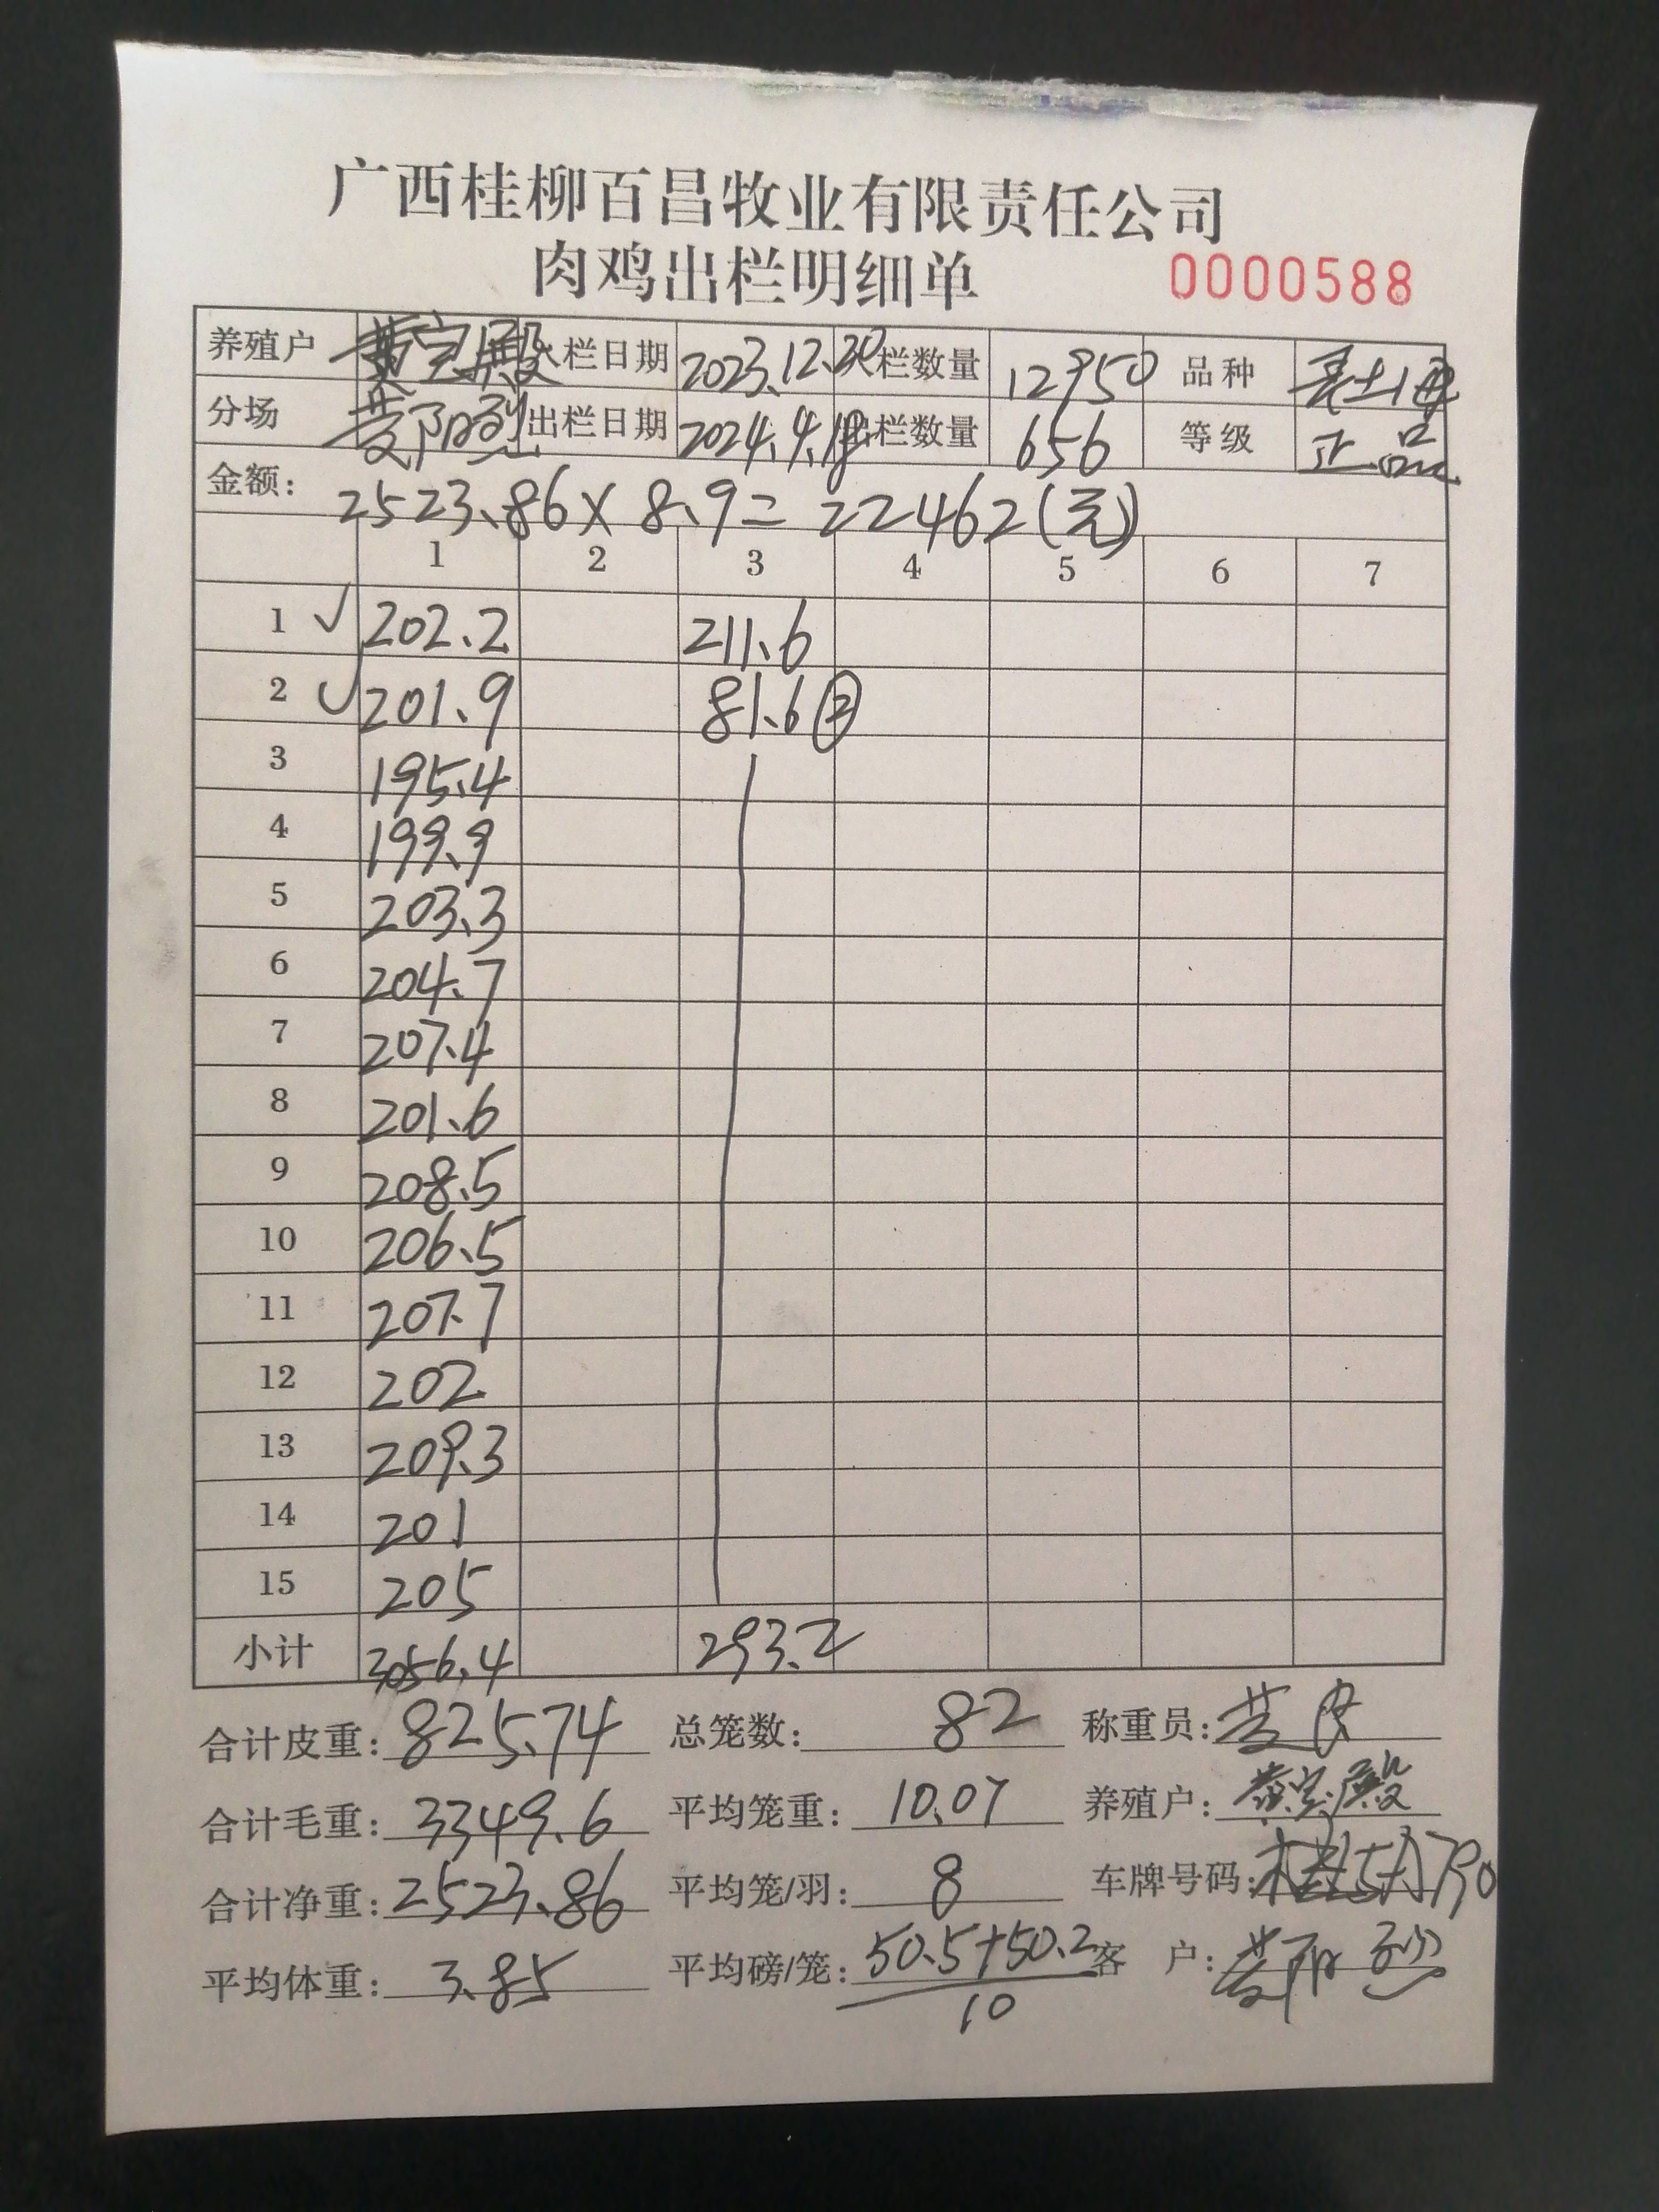 广西桂柳百昌牧业有限责任公司
肉鸡出栏明细单 0000588
养殖户 黄宝殿 入栏日期 2023.12.20 入栏数量 12950 品种
分场 出栏日期 2024.4.18 出栏数量 656 等级 正品
金额: 2523.86×8.9=22462(元)
1 2 3 4 5 6 7
1 ✓ 202.2 211.6
2 ✓ 201.9 81.6 ②
3 195.4
4 199.9
5 203.3
6 204.7
7 207.4
8 201.6
9 208.5
10 206.5
11 207.7
12 202
13 209.3
14 201
15 205
小计 3056.4 293.2
合计皮重: 825.74 总笼数: 82 称重员:
合计毛重: 3349.6 平均笼重: 10.07 养殖户: 黄宝殿
合计净重: 2523.86 平均笼/羽: 8 车牌号码:
平均体重: 3.85 平均磅/笼: 50.5+50.2 客 户:
10